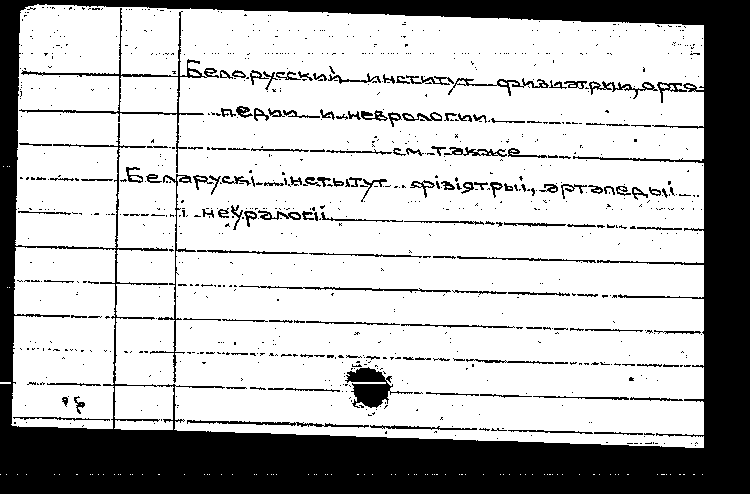 Белорусский институт физиатрии, орто-
педии и неврологии.
см также
Беларускі інстытут фізіятрыі, артапедыі
і неўралогіі.